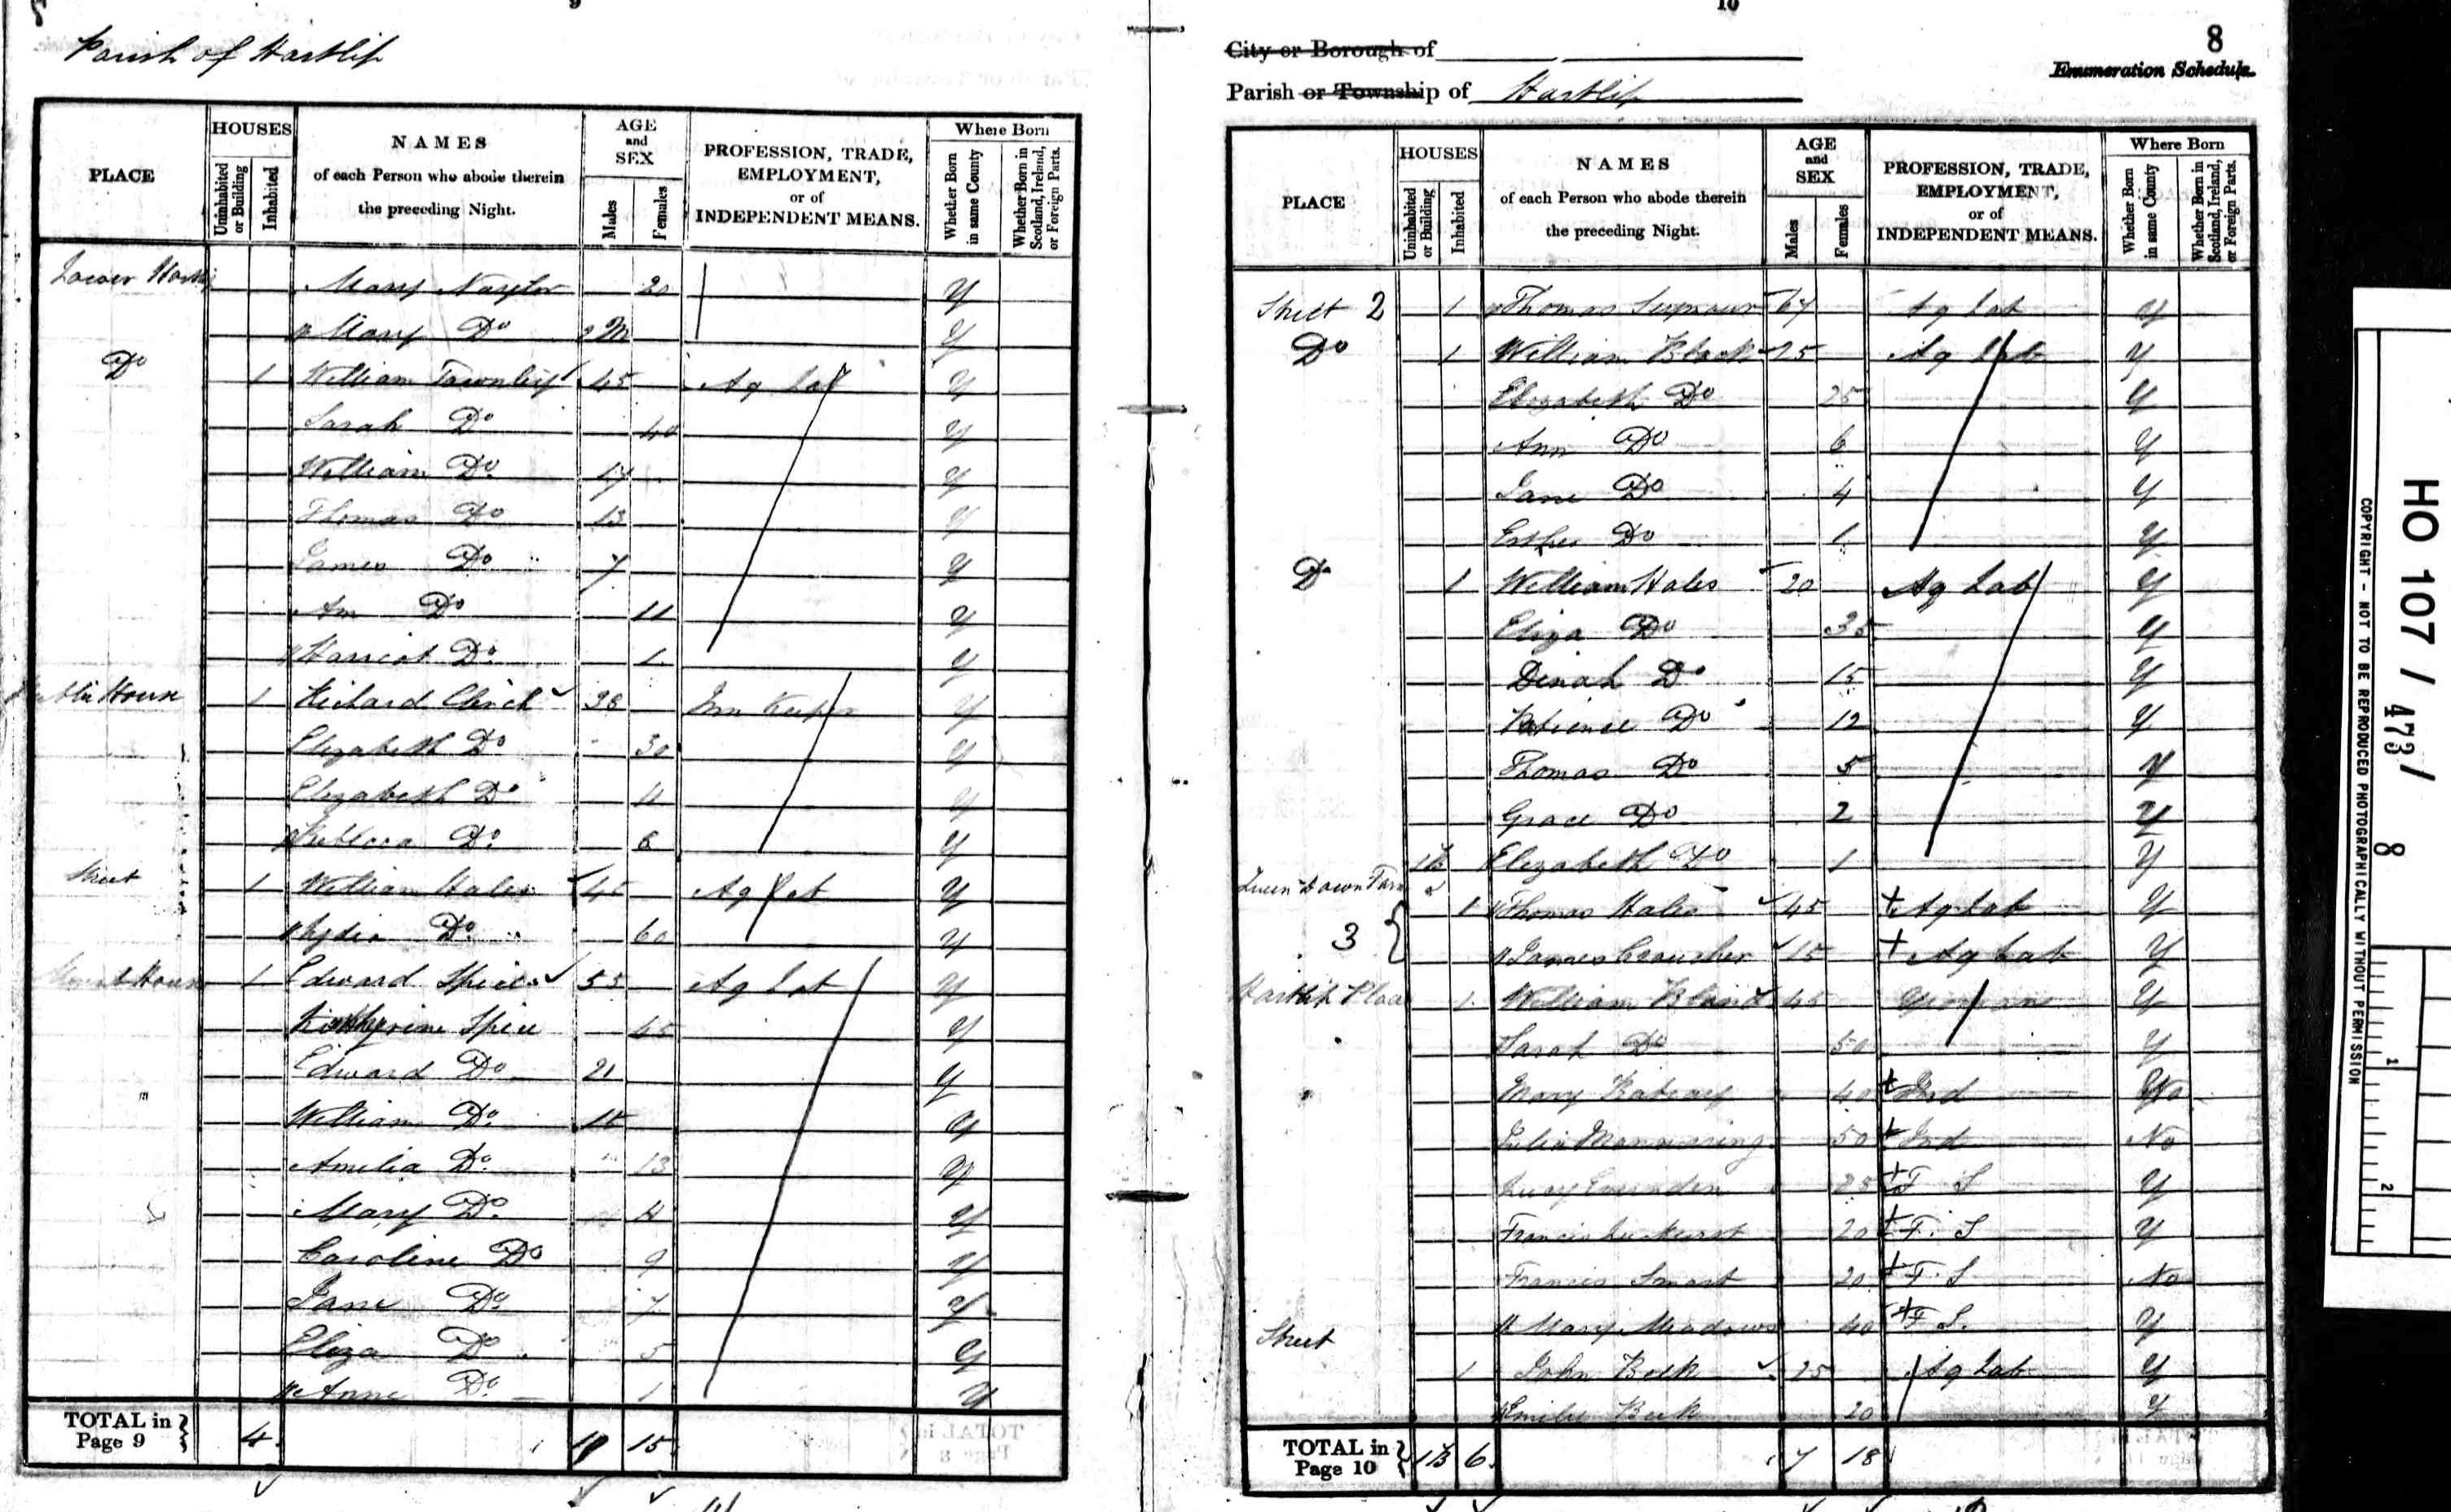 9
Parish of Hartlip
PLACE
HOUSES
Uninhabited or Building
Inhabited
NAMES
of each Person who abode therein
the preceding Night.
AGE
and
SEX
Males
Females
PROFESSION, TRADE,
EMPLOYMENT,
or of
INDEPENDENT MEANS.
Where Born
Whether Born in same County
Whether Born in Scotland, Ireland, or Foreign Parts.
Lower Mary Naylor 20 Y
Mary Do 2 M Y
Do 1 William Townley 45 Ag Lab Y
Sarah Do 40 Y
William Do 17 Y
Thomas Do 13 Y
James Do 7 Y
Ann Do 11 Y
Harriot Do 1 Y
House 1 Richard Clinch Inn Keeper Y
Elizabeth Do 30 Y
Elizabeth Do 11 Y
Rebecca Do 6 Y
Street 1 William Hales 45 Ag Lab Y
Lydia Do 60 Y
House 1 Edward Spice 55 Ag Lab Y
Spice 45 Y
Edward Do 21 Y
William Do Y
Amelia Do 13 Y
Mary Do Y
Caroline Do 9 Y
Jane Do 7 Y
Eliza Do 5 Y
Anne Do 1 Y
TOTAL in Page 9 4 15
10
8
City or Borough of
Enumeration Schedule.
Parish or Township of Hartlip
PLACE
HOUSES
Uninhabited or Building
Inhabited
NAMES
of each Person who abode therein
the preceding Night.
AGE
and
SEX
Males
Females
PROFESSION, TRADE,
EMPLOYMENT,
or of
INDEPENDENT MEANS.
Where Born
Whether Born in same County
Whether Born in Scotland, Ireland, or Foreign Parts.
Street 2 1 Thomas Seymour 67 Ag Lab Y
Do 1 William Black 25 Ag Lab Y
Elizabeth Do 25 Y
Ann Do 6 Y
Jane Do 4 Y
Esther Do 1 Y
Do 1 William Hales 20 Ag Lab Y
Eliza Do 35 Y
Dinah Do 15 Y
Patience Do 12 Y
Thomas Do 5 Y
Grace Do 2 Y
1B Elizabeth Do 1 Y
Queen Down Farm 1 Thomas Hales 45 Ag Lab Y
3 James Croucher 15 Ag Lab Y
Hartlip Place 1 William Bland 45 Yeoman Y
Sarah Do 50 Y
Mary 40 Ind No
Julia Mannering 50 Ind No
Lucy 25 F S Y
Francis Luckhurst 20 F. S Y
Francis Smart 20 F. S No
Mary Meadows 40 F S. Y
Street
1 John Beck 25 Ag Lab Y
Emily Beck 20 Y
TOTAL in Page 10 1B 6 7 18
HO 107 / 473 / 8
COPYRIGHT - NOT TO BE REPRODUCED PHOTOGRAPHICALLY WITHOUT PERMISSION
1
2